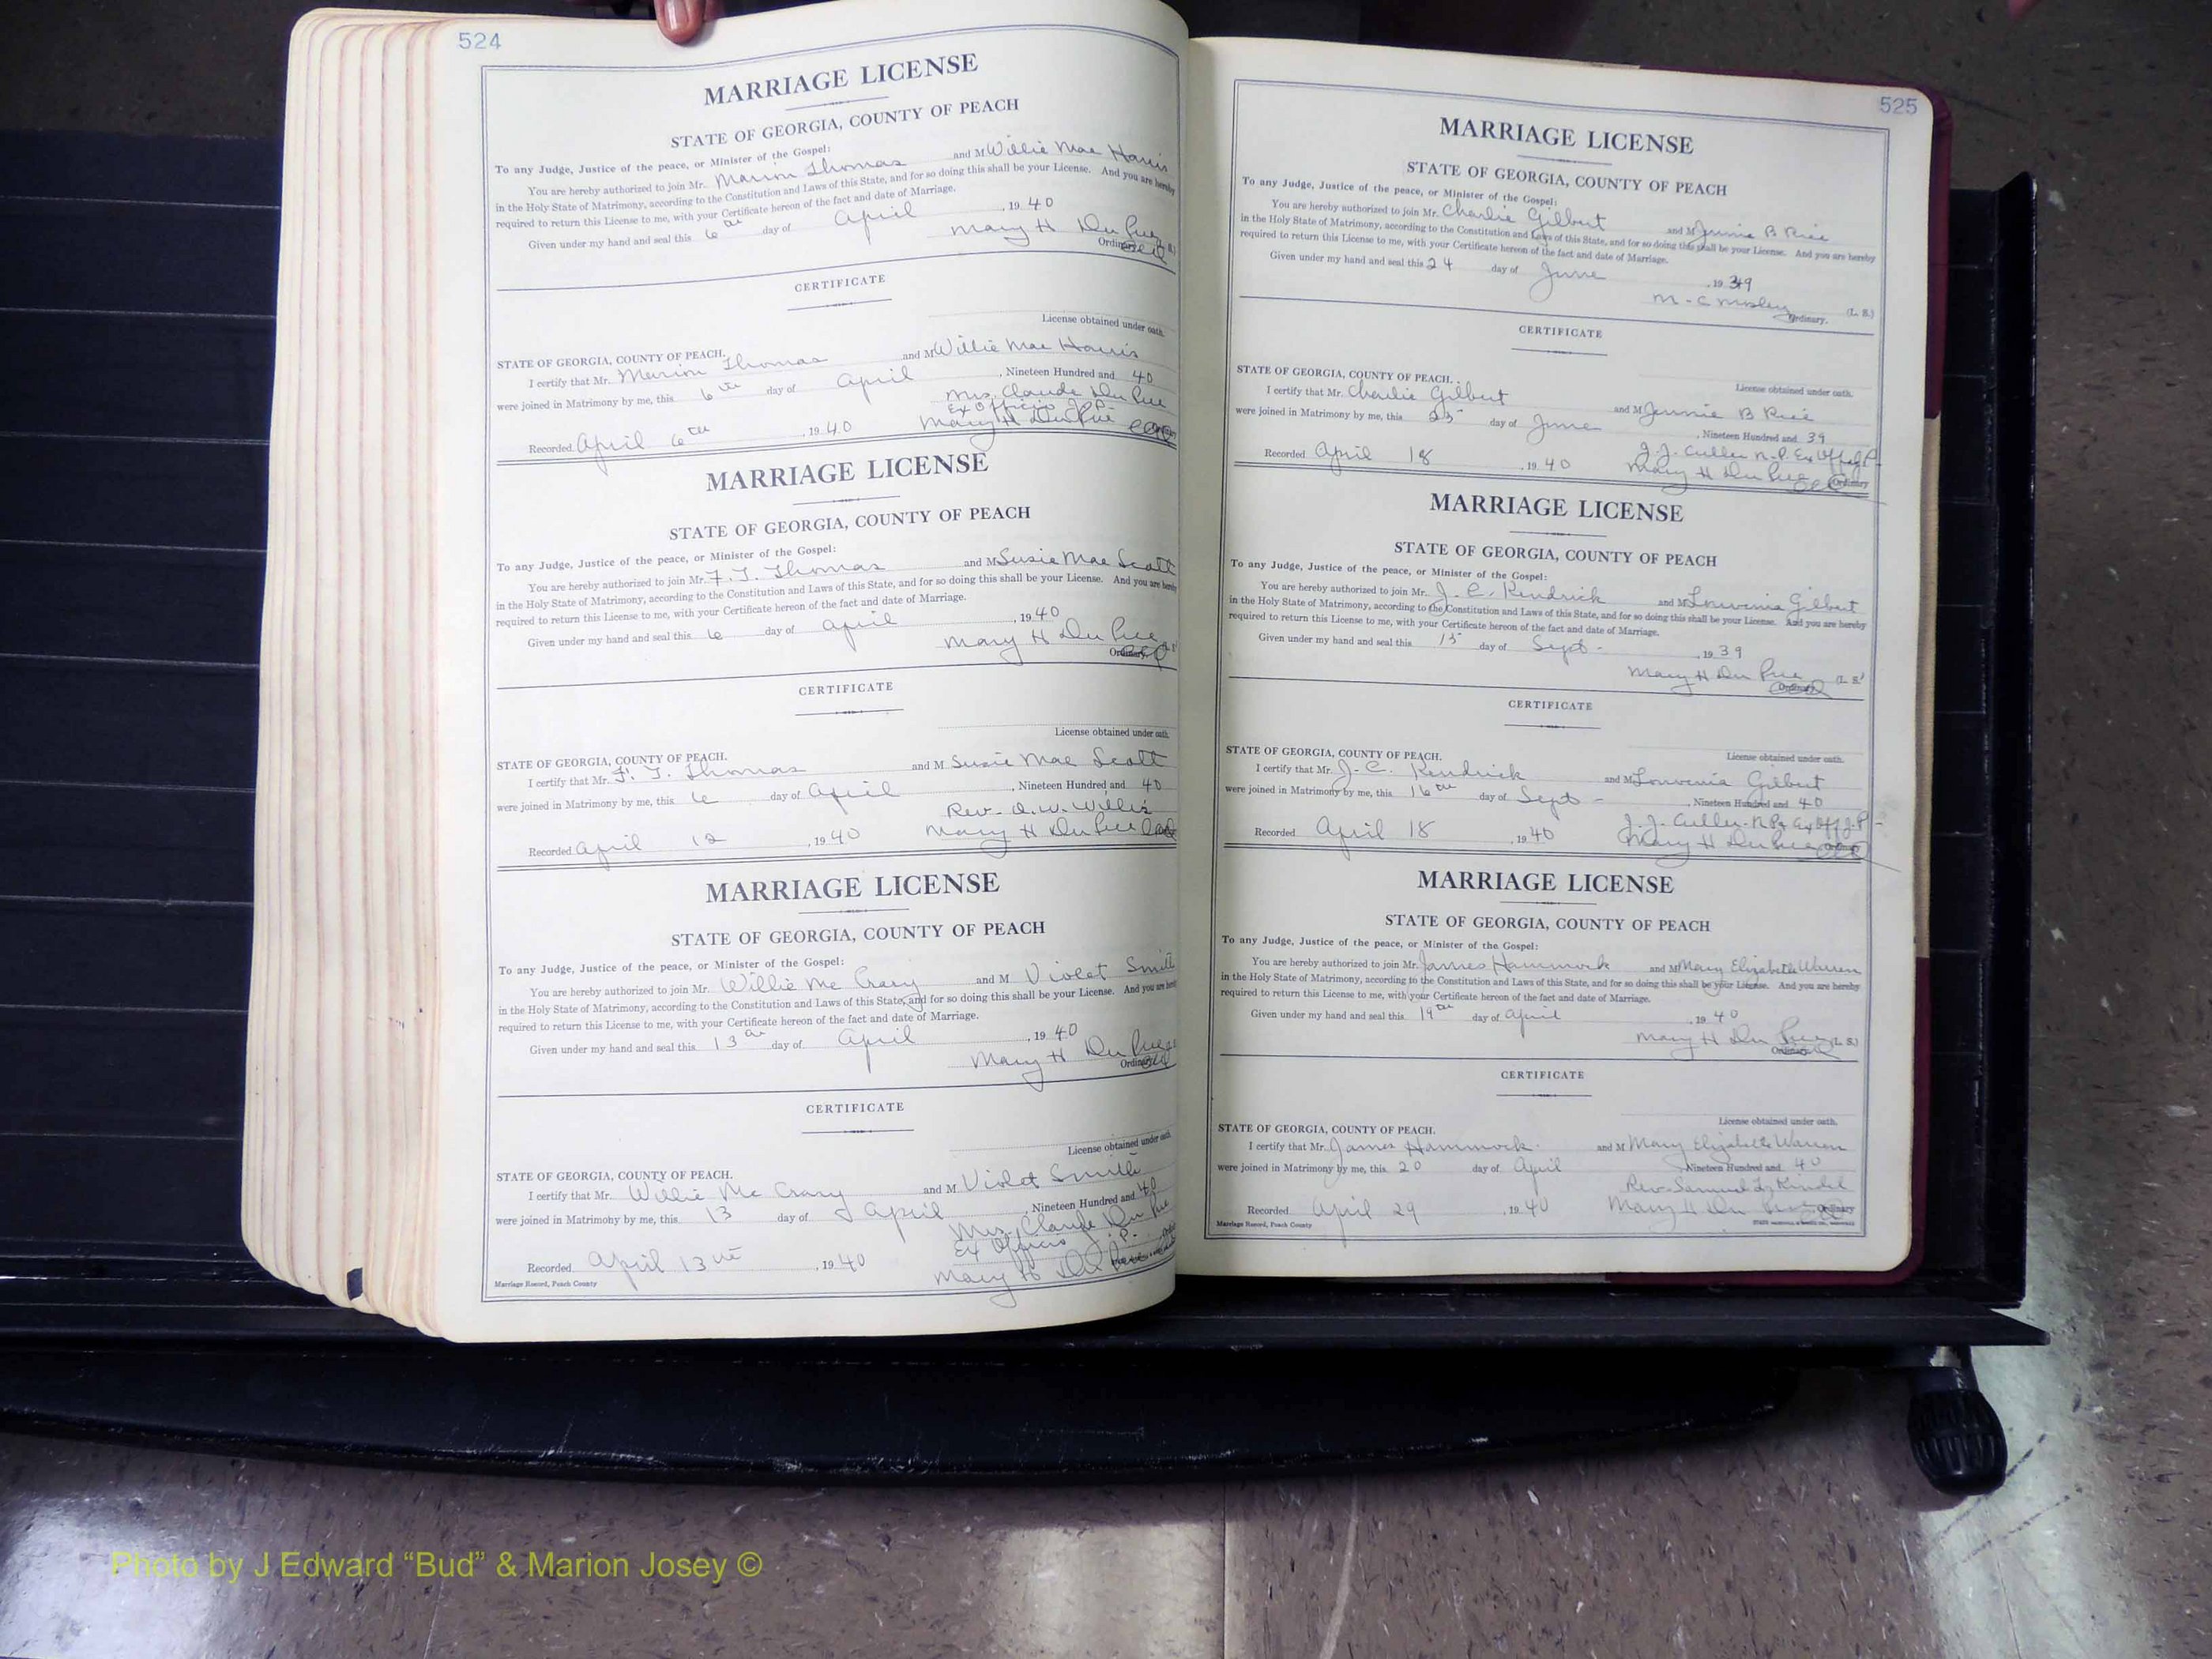 524
MARRIAGE LICENSE
STATE OF GEORGIA, COUNTY OF PEACH
To any Judge, Justice of the peace, or Minister of the Gospel:
You are hereby authorized to join Mr. Marion Thomas and M Willie Mae Harris
in the Holy State of Matrimony, according to the Constitution and Laws of this State, and for so doing this shall be your License. And you are hereby
required to return this License to me, with your Certificate hereon of the fact and date of Marriage.
Given under my hand and seal this 6th day of April, 1940
Mary H DuPree
Ordinary
CERTIFICATE
License obtained under oath.
STATE OF GEORGIA, COUNTY OF PEACH.
I certify that Mr. Marion Thomas and M Willie Mae Harris
were joined in Matrimony by me, this 6th day of April, Nineteen Hundred and 40
Mrs. Claude DuPree
Ex Officio J.P.
Recorded April 6th, 1940 Mary H DuPree
MARRIAGE LICENSE
STATE OF GEORGIA, COUNTY OF PEACH
To any Judge, Justice of the peace, or Minister of the Gospel:
You are hereby authorized to join Mr. F. T. Thomas and M Susie Mae Scott
in the Holy State of Matrimony, according to the Constitution and Laws of this State, and for so doing this shall be your License. And you are hereby
required to return this License to me, with your Certificate hereon of the fact and date of Marriage.
Given under my hand and seal this 6 day of April, 1940
Mary H DuPree
Ordinary.
CERTIFICATE
License obtained under oath.
STATE OF GEORGIA, COUNTY OF PEACH.
I certify that Mr. F. T. Thomas and M Susie Mae Scott
were joined in Matrimony by me, this 6 day of April, Nineteen Hundred and 40
Rev. O. W. Willis
Recorded April 12, 1940 Mary H DuPree
MARRIAGE LICENSE
STATE OF GEORGIA, COUNTY OF PEACH
To any Judge, Justice of the peace, or Minister of the Gospel:
You are hereby authorized to join Mr. Willie Mc Crary and M Violet Smith
in the Holy State of Matrimony, according to the Constitution and Laws of this State, and for so doing this shall be your License. And you are hereby
required to return this License to me, with your Certificate hereon of the fact and date of Marriage.
Given under my hand and seal this 13th day of April, 1940
Mary H DuPree
Ordinary
CERTIFICATE
License obtained under oath.
STATE OF GEORGIA, COUNTY OF PEACH.
I certify that Mr. Willie Mc Crary and M Violet Smith
were joined in Matrimony by me, this 13 day of April, Nineteen Hundred and 40
Mrs. Claude DuPree
Ex Officio J.P.
Recorded April 13th, 1940 Mary H DuPree
Marriage Record, Peach County
525
MARRIAGE LICENSE
STATE OF GEORGIA, COUNTY OF PEACH
To any Judge, Justice of the peace, or Minister of the Gospel:
You are hereby authorized to join Mr. Charlie Gilbert and M Jennie B Rice
in the Holy State of Matrimony, according to the Constitution and Laws of this State, and for so doing this shall be your License. And you are hereby
required to return this License to me, with your Certificate hereon of the fact and date of Marriage.
Given under my hand and seal this 24 day of June, 1939
M. C Mosley (L. S.)
Ordinary.
CERTIFICATE
License obtained under oath.
STATE OF GEORGIA, COUNTY OF PEACH.
I certify that Mr. Charlie Gilbert and M Jennie B Rice
were joined in Matrimony by me, this 25 day of June, Nineteen Hundred and 39
J. J. Culler N.P. Ex Off J.P.
Recorded April 18, 1940 Mary H DuPree Ordinary
MARRIAGE LICENSE
STATE OF GEORGIA, COUNTY OF PEACH
To any Judge, Justice of the peace, or Minister of the Gospel:
You are hereby authorized to join Mr. J. C. Kendrick and M Louvenia Gilbert
in the Holy State of Matrimony, according to the Constitution and Laws of this State, and for so doing this shall be your License. And you are hereby
required to return this License to me, with your Certificate hereon of the fact and date of Marriage.
Given under my hand and seal this 15 day of Sept-, 1939
Mary H DuPree (L. S.)
Ordinary
CERTIFICATE
License obtained under oath.
STATE OF GEORGIA, COUNTY OF PEACH.
I certify that Mr. J. C. Kendrick and M Louvenia Gilbert
were joined in Matrimony by me, this 16th day of Sept-, Nineteen Hundred and 40
J. J. Culler N.P. Ex Off J.P.
Recorded April 18, 1940 Mary H DuPree
MARRIAGE LICENSE
STATE OF GEORGIA, COUNTY OF PEACH
To any Judge, Justice of the peace, or Minister of the Gospel:
You are hereby authorized to join Mr. James Hammock and M Mary Elizabeth Warren
in the Holy State of Matrimony, according to the Constitution and Laws of this State, and for so doing this shall be your License. And you are hereby
required to return this License to me, with your Certificate hereon of the fact and date of Marriage.
Given under my hand and seal this 19th day of April, 1940
Mary H DuPree (L. S.)
Ordinary
CERTIFICATE
License obtained under oath.
STATE OF GEORGIA, COUNTY OF PEACH.
I certify that Mr. James Hammock and M Mary Elizabeth Warren
were joined in Matrimony by me, this 20 day of April, Nineteen Hundred and 40
Rev. Samuel
Recorded April 29, 1940 Mary H DuPree Ordinary
Marriage Record, Peach County
Photo by J Edward “Bud” & Marion Josey ©